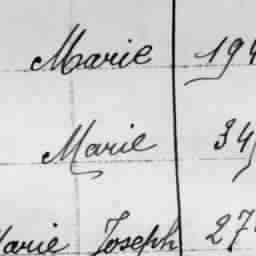 Marie 194
Marie 34
Marie Joseph 27